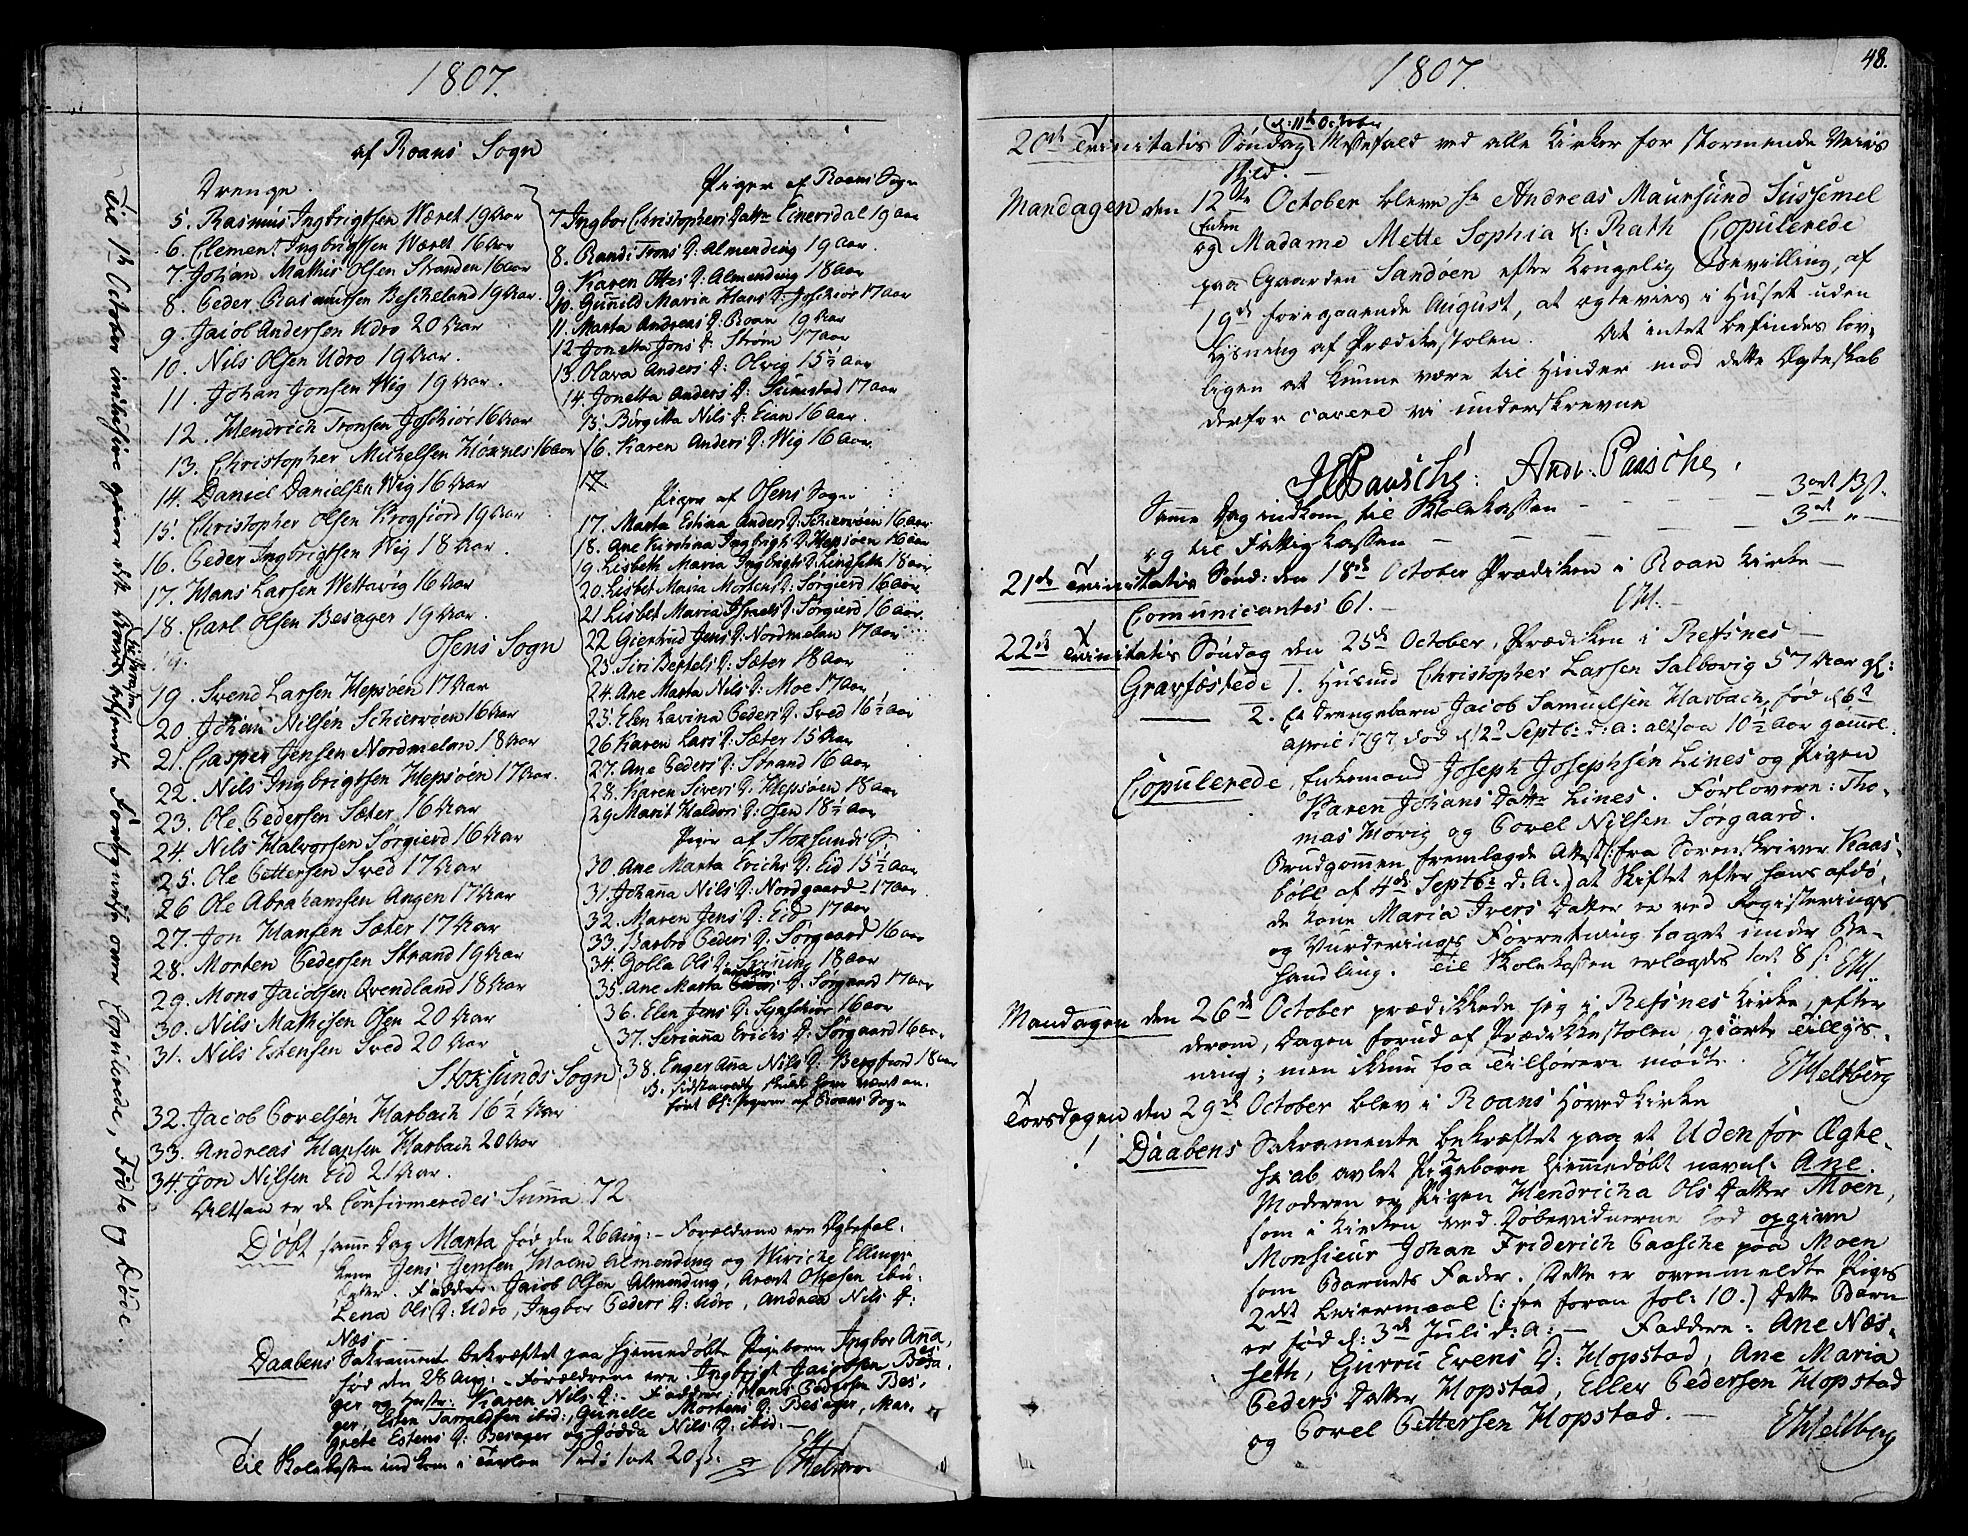 1807.
af Roans Sogn
Drenge.
5. Rasmus Ingbrigtsen Wæret 19 Aar
6. Clement Ingbrigtsen Wæret 16 Aar
7. Johan Mathis Olsen Stranden 16 aar
8. Peder Rasmussen Beskeland 19 Aar.
9. Jacob Andersen Udro 20 Aar
10. Nils Olsen Udro 19 Aar.
11. Johan Jonsen Wig 19 Aar.
12. Hendrich Tronsen Joschiör 16 Aar
13. Christopher Michelsen Hofnes 16 aar
14. Daniel Danielsen Wig 16 Aar
15. Christopher Olsen Krogfiord 19 Aar
16. Peder Ingbrigtsen Wig 18 Aar.
17. Hans Larsen Wettavig 16 Aar
18. Carl Olsen Besager 19 Aar.
Osens Sogn
19. Svend Larsen Hepsöen 17 Aar
20. Johan Nilsen Schiervöen 16 Aar
21. Casper Jensen Nordmelan 18 Aar
22. Nils Ingbrigtsen Hepsöen 17 Aar.
23. Ole Pedersen Sæter 16 Aar
24. Nils Halvorsen Sörgierd 16 Aar
25. Ole Pettersen Sved 17 Aar
26 Ole Abrahamsen Angen 17 Aar
27. Jon Hansen Sæter 17 Aar
28. Morten Pedersen Strand 19 Aar
29. Mons Jacobsen Qvendland 18 Aar
30. Nils Mathisen Osen 20 Aar
31. Nils Estensen Sved 20 Aar
Stoksunds Sogn
32. Jacob Povelsen Harbach 16 ½ Aar
33. Andreas Hansen Harbach 20 Aar
34. Jon Nilsen Eid 21 Aar.
Altsaa er de Confirmeredes Summa 72
Piger af Roans Sogn
7 Ingbor Christophers Datter Einersdal 19 aar
8. Randi Trons D: Almending 19 Aar.
9. Karen Ottes D: Almending 18 Aar
10. Gunild Maria Hans D: Joschiör 17 Aar
11. Marta Andreas D: Roan 19 Aar
12 Jonetta Jons D: Ström 17 Aar
13. Olava Anders D: Olvig 15 ½ Aar
14. Jonetta Anders D: Sumstad 17 Aar
15. Birgitta Nils D: Eian 16 Aar.
16. Karen Anders D: Wig 16 Aar.
17
Piger af Osens Sogn
17. Marta Estina Anders D: Schiervöen 16 Aar
18. Ane Kirstina Ingbrigts D: Hepsöen 16 aar
19. Lisbeth Maria Ingbrigts D: Lindseth 18 aar
20. Lisbet Maria Mortens D: Sörgierd 16 Aar
21 Lisbet Maria Israels D: Sörgierd 16 Aar
22 Giertrud Jens D: Nordmelan 17 Aar
23. Siri Bertels D: Sæter 18 Aar
24. Ane Marta Nils D: Moe 17 Aar
25. Elen Lavina Peders D: Sved 16 ½ aar
26 Karen Lars D: Sæter 15 Aar
27. Ane Peders D: Strand 16 Aar
28. Karen Sivers D: Hepsöen 18 Aar
29 Marit Haldors D: Osen 18 ½ Aar
Piger af Stoksunds S
30. Ane Marta Erichs D: Eid 15 ½ Aar
31. Johana Nils D: Nordgaard 17 Aar
32. Maren Jens D: Eid 17 aar
33. Barbro Peders D: Sörgaard 16 aar
34. Golla Ols D: 18 aar
35. Ane Marta D: Sörgaard 17 aar
36. Elen Jens D: 16 aar
37. Serianna Erichs D: Sörgaard 16 aar
38. Enger Ana Nils D: Bergfiord 18 aar
Döbt samme Dag Marta föd den 26 Aug: – Forældrene ere Ægtefol-
kene Jens Jensen Holm Almending og Wiviche Ellings
Datter. Faddere: Jacob Olsen Almending, Arent Olsen ibid:
Lena Ols D: Udro, Ingbor Peders D: Udro, Andrea Nils D:
Næs.
Daabens Sakramente bekræftet paa hjemmedöbte Pigebarn Ingbor Ana,
föd den 28 Aug: – Forældrene ere, Ingbrigt Jacobsen Besa-
ger og Hustr: Karen Nils D: – Faddere: Hans Pedersen Besa-
ger, Esten Tarraldsen ibid:, Gunelle Mortens D: Besager, Mar-
grete Estens D: Besager og Gödda Nils D: ibid: –
Til Skolekassen indkom i Tavlen 1 ort 20 s.
Til 1te October inclusive gjort det Kongl: befalede Fortegnelse over Copulerede, Födte og Döde.
1807.
48.
d: 11te October
20de Trinitatis Söndag Messefald ved alle Kirker for stormende Veirs
Skild. –
Mandagen den 12te October bleve Hr Andreas Maursund Tussemel
og Enken Madame Mette Sophia f: Rath Copulerede
paa Gaarden Sandöen efter Kongelig Bevilling, af
19de foregaaende August, at ægtevies i Huset uden
Lysning af Prædikestolen. At intet befindes lov-
ligen at kunne være til Hinder mod dette Ægteskab
derfor cavere vi underskrevne
HPaasche: Andr: Paasche.
Samme Dag indkom til Skolekassen – – – – 3 ort 13 s.
og til Fattigkassen – – – – 3 ort „ –
21de Trinitatis Sönd: den 18de October Prædiken i Roan Kirke –
Comunicantes 61. – EM.
22de Trinitatis Söndag den 25de October, Prædiken i Refsnes –
Gravfæstede 1. Husmd Christopher Larsen Salbovig 57 Aar gl:
2. Et Drengebarn Jacob Samuelsen Harbach, föd d 6te
April 1797 död d 12te Septb: d: a: altsaa 10 ½ Aar gammel.
Copulerede, Enkemand Joseph Josephsen Lines og Pigen
Karen Johans Datter Lines. Forlovere: Tho-
mas Hovig og Povel Nilsen Sörgaard.
Brudgommen fremlagde Attest (: fra Sorenskriver Kaas-
böll af 4de Septb: d: A:) at Skiftet efter hans afdö-
de Kone Maria Ivers Datter er ved Registerings
og Vurderings Forretning taget under Be-
handling. Til Skolekassen erlagdes 1 ort 8 s: EM.
Mandagen den 26de October prædikkede jeg i Refsnes Kirke, efter
derom, Dagen forud af Prædikkestolen, giorte Tillys-
ning; men ikkun faa Tilhörere mödte. EMeltberg
Torsdagen den 29de October blev i Roans Hovedkirke
Daabens Sakramente bekræftet paa et Uden for Ægte-
skab avlet Pigebarn hiemmedöbt navnl: Ane.
Moderen er Pigen Hendricha Ols Datter Moen,
som i Kirken ved Döbevidnerne lod opgive
Monsieur Johan Friderich Paasche paa Moen
som Barnets Fader. Dette er ovenmeldte Piges
2det Leiermaal (: see foran fol: 10.) Dette Barn
er föd d: 3de Juli d: A: – Faddere: Ane Næs-
seth, Gurru Evens D: Hopstad, Ane Maria
Peders Datter Hopstad, Eller Pedersen Hopstad
og Povel Pettersen Hopstad. – EMeltberg